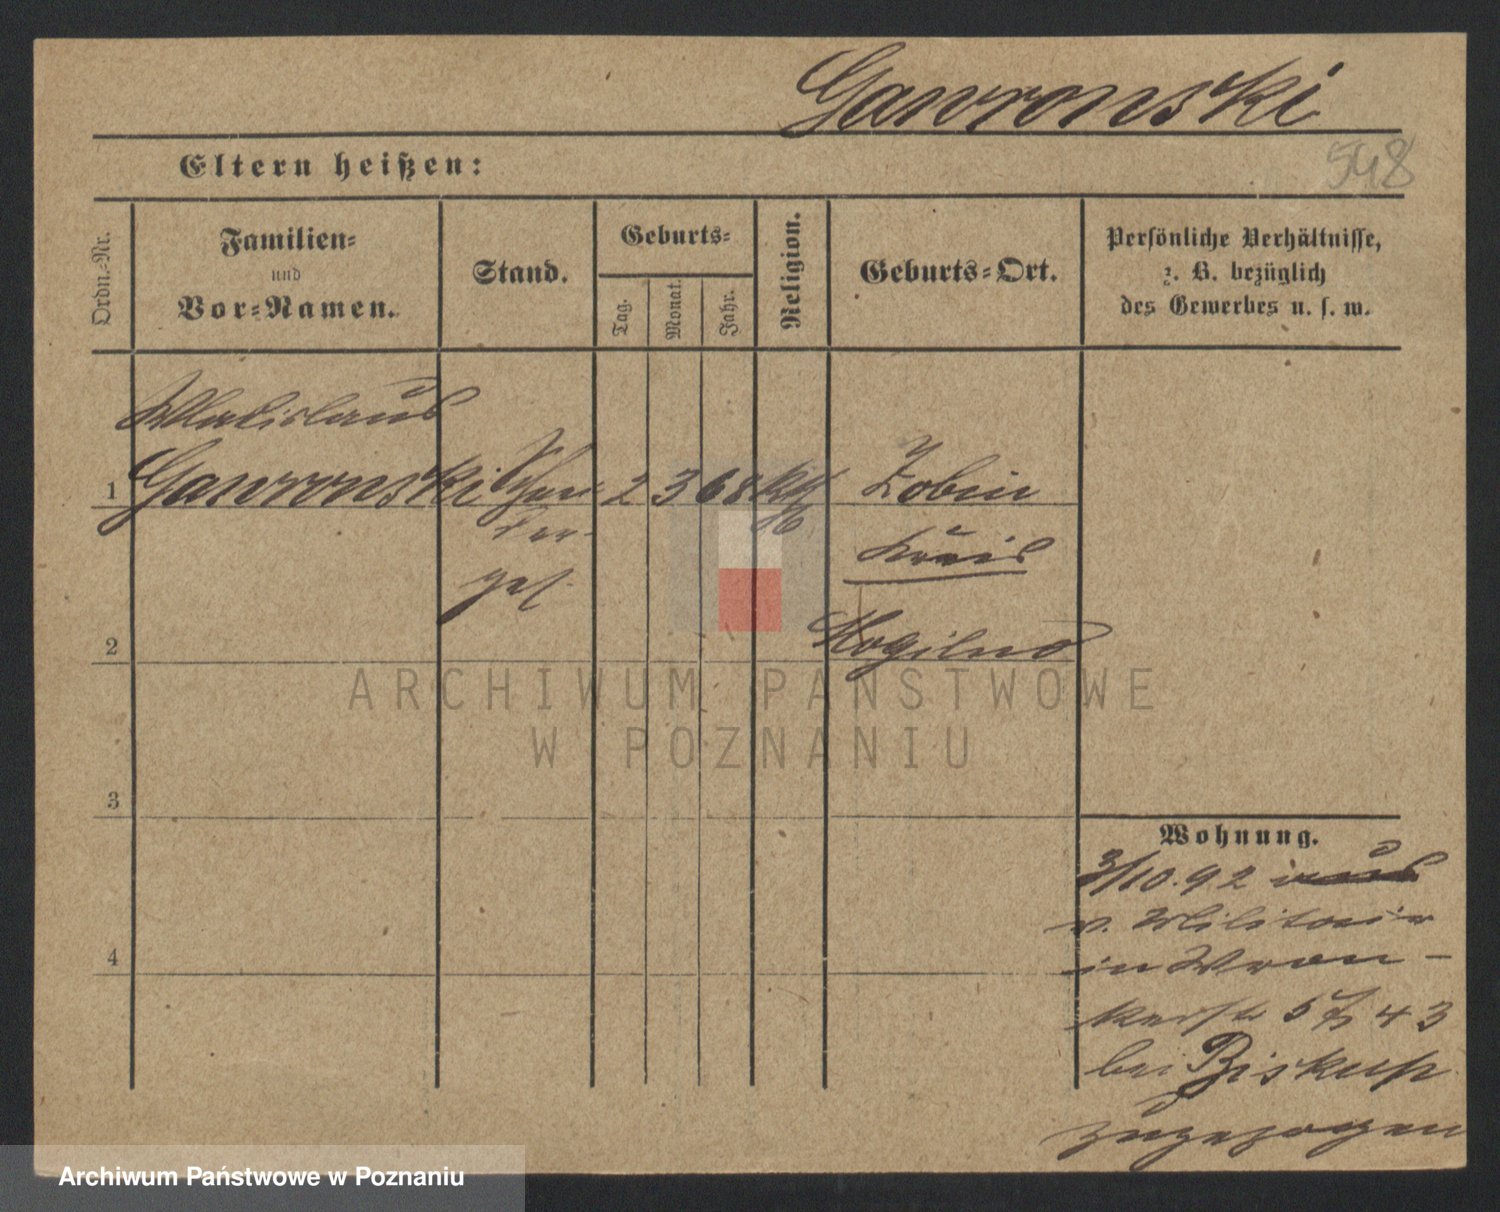 Gawronski
548
Eltern heißen:
Ordn.-Nr.
Familien-
und
Vor-Namen.
Stand.
Geburts-
Tag.
Monat.
Jahr.
Religion.
Geburts-Ort.
Persönliche Verhältnisse,
z. B. bezüglich
des Gewerbes u. s. w.
Wladislaus
1 Gawronski 2 3 68 kth
Kreis
2 Mogilno
3
4
Wohnung.
3/10.92
v. Militair
in Wron-
kerstr 5 43
bei Biskup
zugezogen
ARCHIWUM PAŃSTWOWE
W POZNANIU
Archiwum Państwowe w Poznaniu